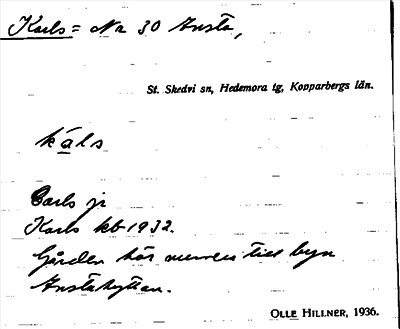 Karls = Nr 30 Ansta,
St. Skedvi sn, Hedemora tg, Kopparbergs län.
kals
Carls jr
Karls kb 1932.
Gården hör numera till byn
Anstahyttan.
OLLE HILLNER, 1936.